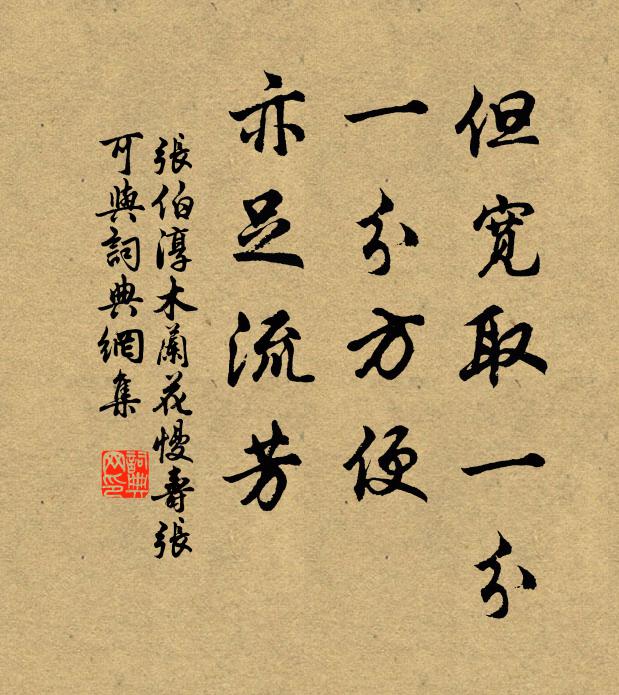 但宽取一分
一分方便
亦足流芳
張伯淳木蘭花慢壽張
可與詞典網集
詞典
网印